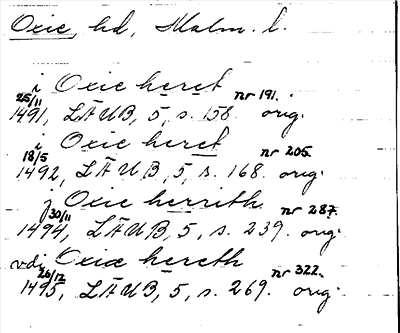 Oxie, hd, Malm. l.
i Oxie heret nr 191.
25/11 1491, LÄUB, 5, s. 158. orig.
i Oxie heret nr 205.
18/5 1492, LÄUB, 5, s. 168. orig.
j Oxie herrith nr 287.
30/11 1494, LÄUB, 5, s. 239. orig.
vdj Oxiæ hereth nr 322.
26/12 1495, LÄUB, 5, s. 269. orig.